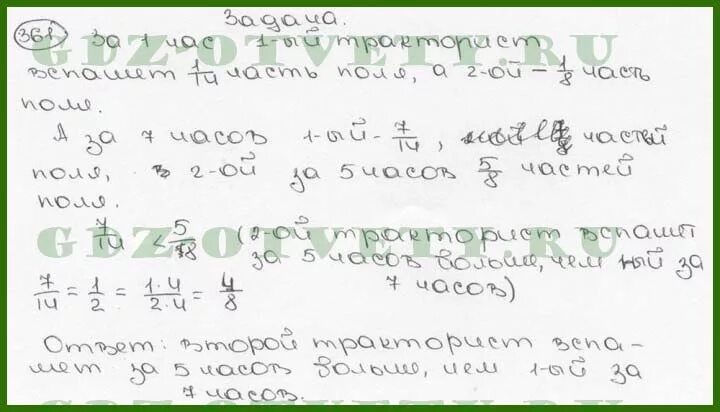 Задача.
361 За 1 час 1-ый тракторист
вспашет 1/14 часть поля, а 2-ой – 1/8 часть
поля.
А за 7 часов 1-ый - 7/14, частей
поля, 2-ой за 5 часов 5/8 частей
поля.
7/14 < 5/8 (2-ой тракторист вспашет
за 5 часов больше, чем 1-ый за
7/14 = 1/2 = 1·4/2·4 = 4/8 7 часов)
Ответ: второй тракторист вспа-
шет за 5 часов больше, чем 1-ый за
7 часов.
GDZ-OTVETY.RU
GDZ-OTVETY.RU